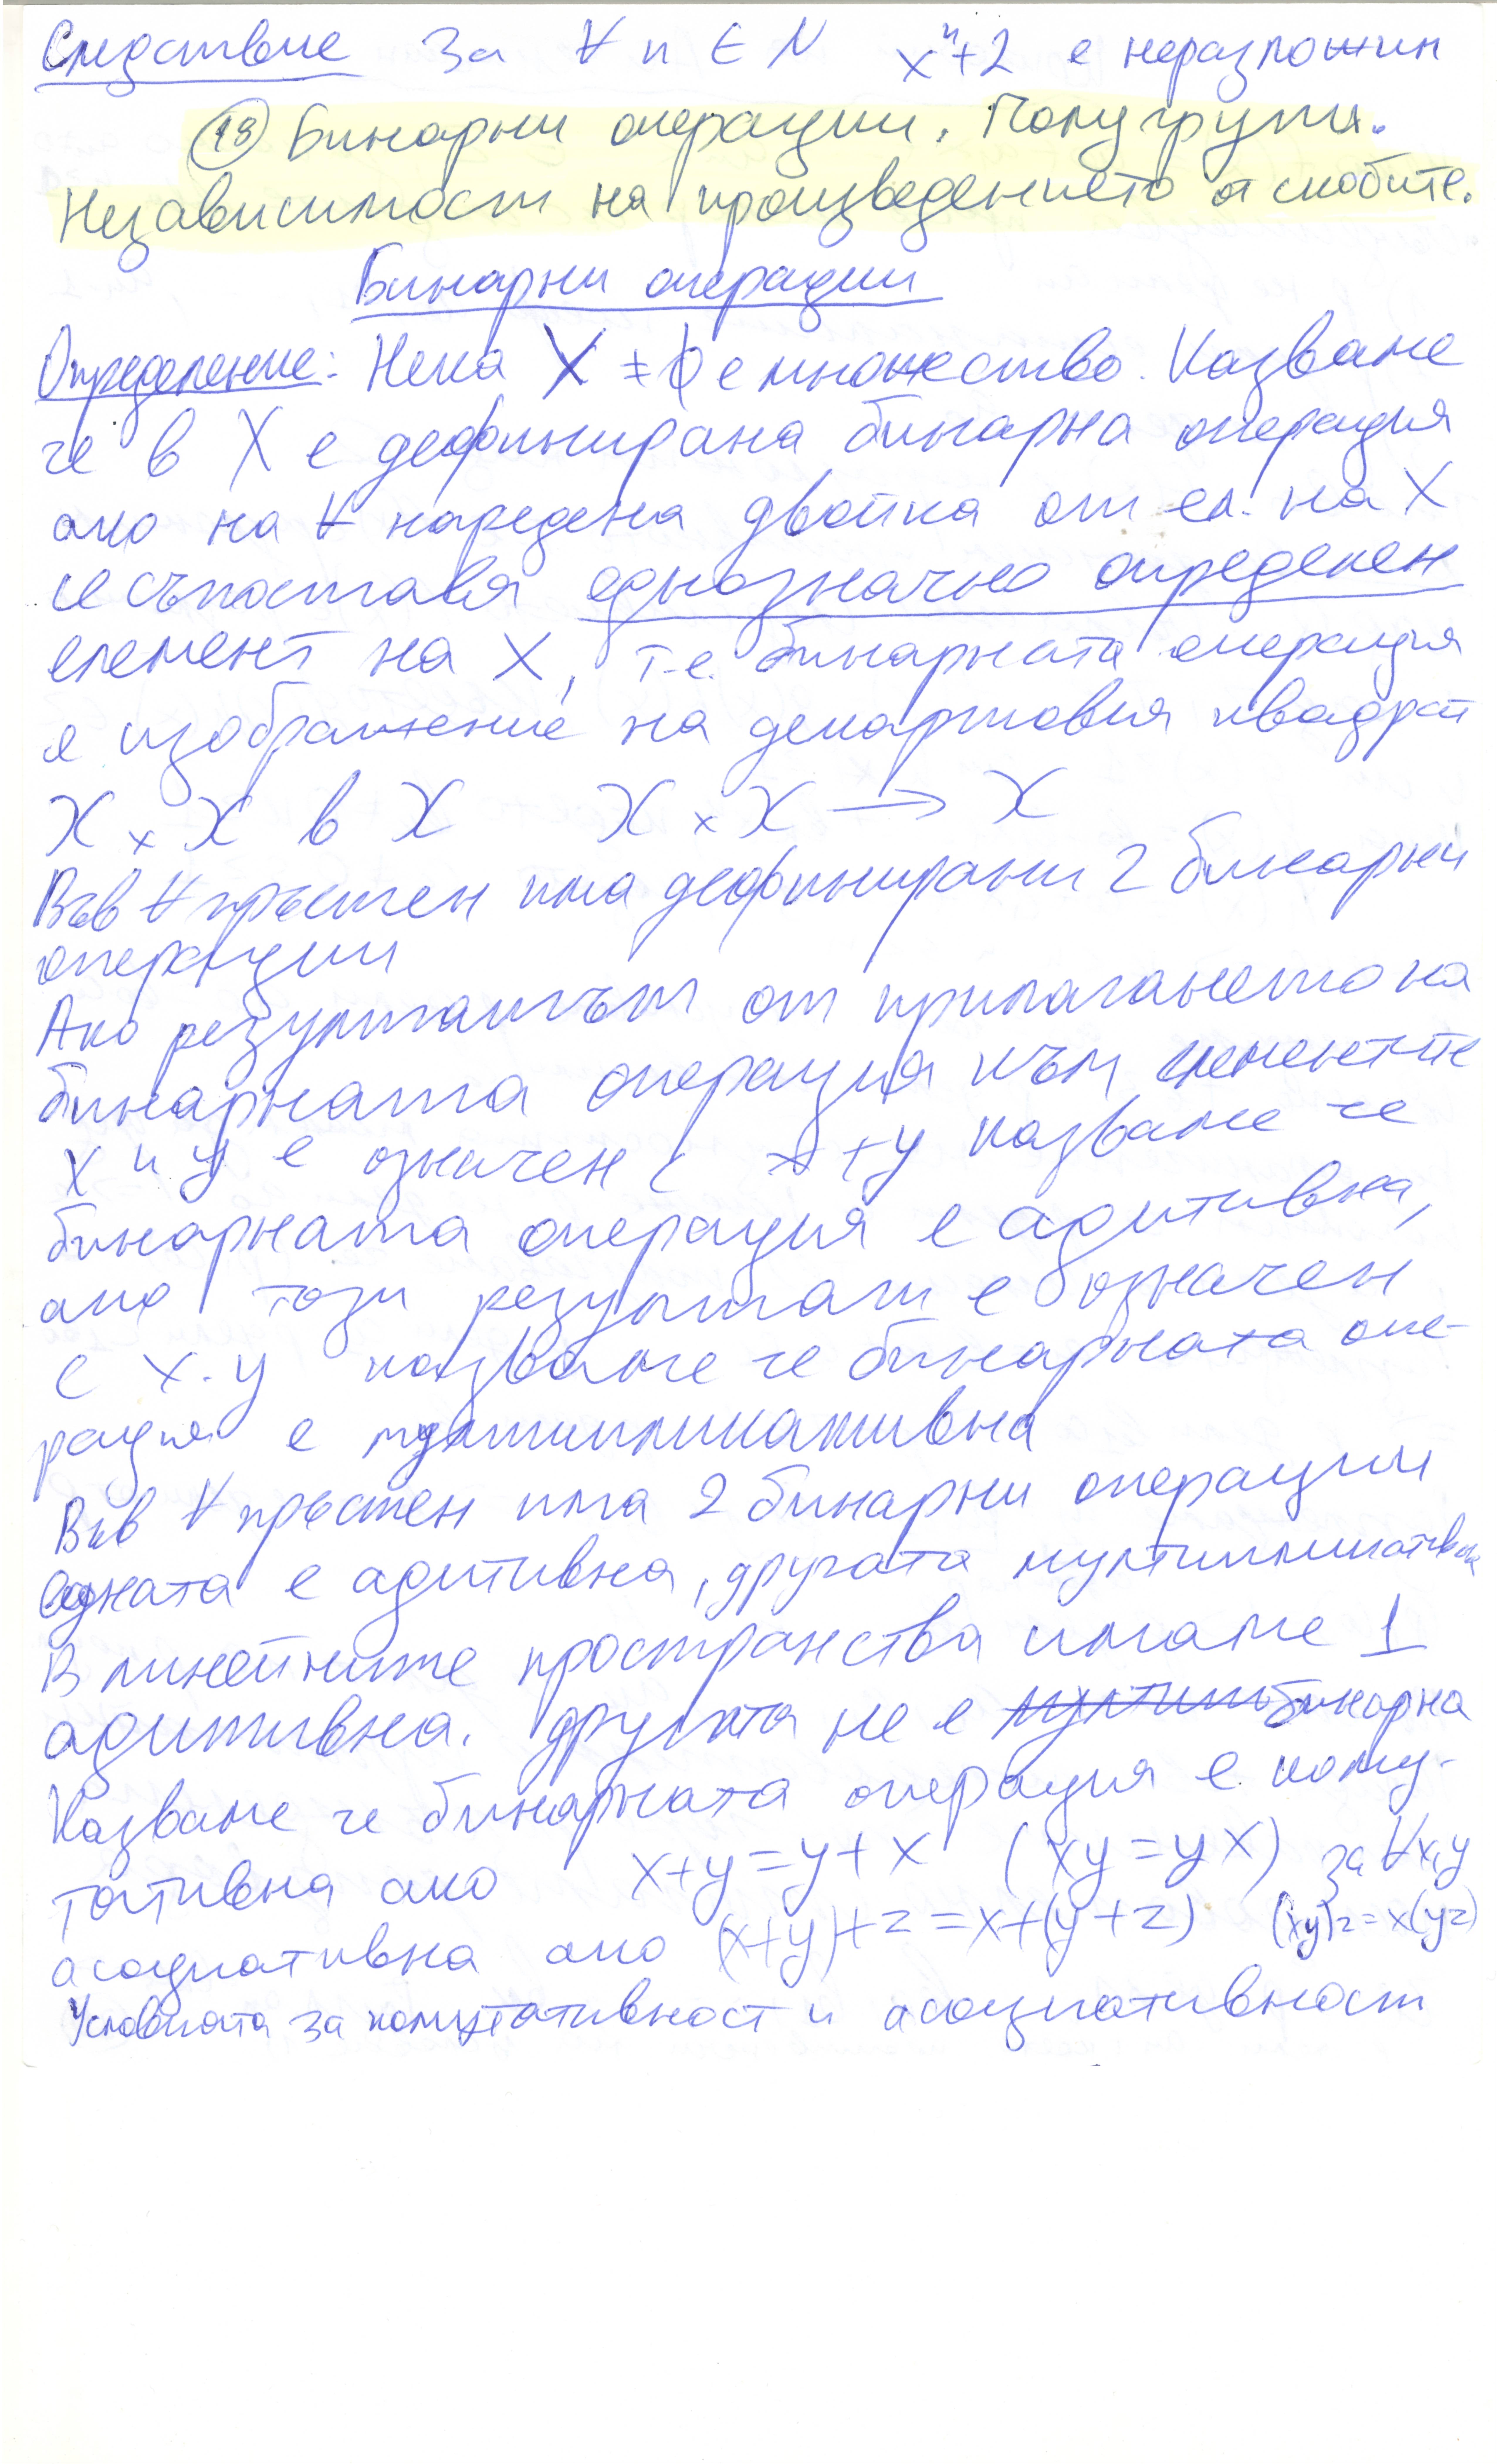 Следствие За ∀ n ∈ N xⁿ+2 е неразложим
(18) Бинарни операции. Полугрупи.
Независимост на произведението от скобите.
Бинарни операции
Определение: Нека X ≠ ∅ е множество. Казваме
че в X е дефинирана бинарна операция
ако на ∀ наредена двойка от ел. на X
се съпоставя еднозначно определен
елемент на X, т.е. бинарната операция
е изображение на декартовия квадрат
X × X в X X × X → X
Във ∀ пръстен има дефинирани 2 бинарни
операции
Ако резултатът от прилагането на
бинарната операция към елементите
x и y е означен с x+y казваме че
бинарната операция е адитивна,
ако този резултат е означен
с x.y казваме че бинарната опе-
рация е мултипликативна
Във ∀ пръстен има 2 бинарни операции
едната е адитивна, другата мултипликативна
В линейните пространства имаме 1
адитивна. другата не е бинарна
Казваме че бинарната операция е кому-
тативна ако x+y=y+x (xy=yx) за ∀x,y
асоциативна ако (x+y)+z=x+(y+z) (xy)z=x(yz)
Условията за комутативност и асоциативност